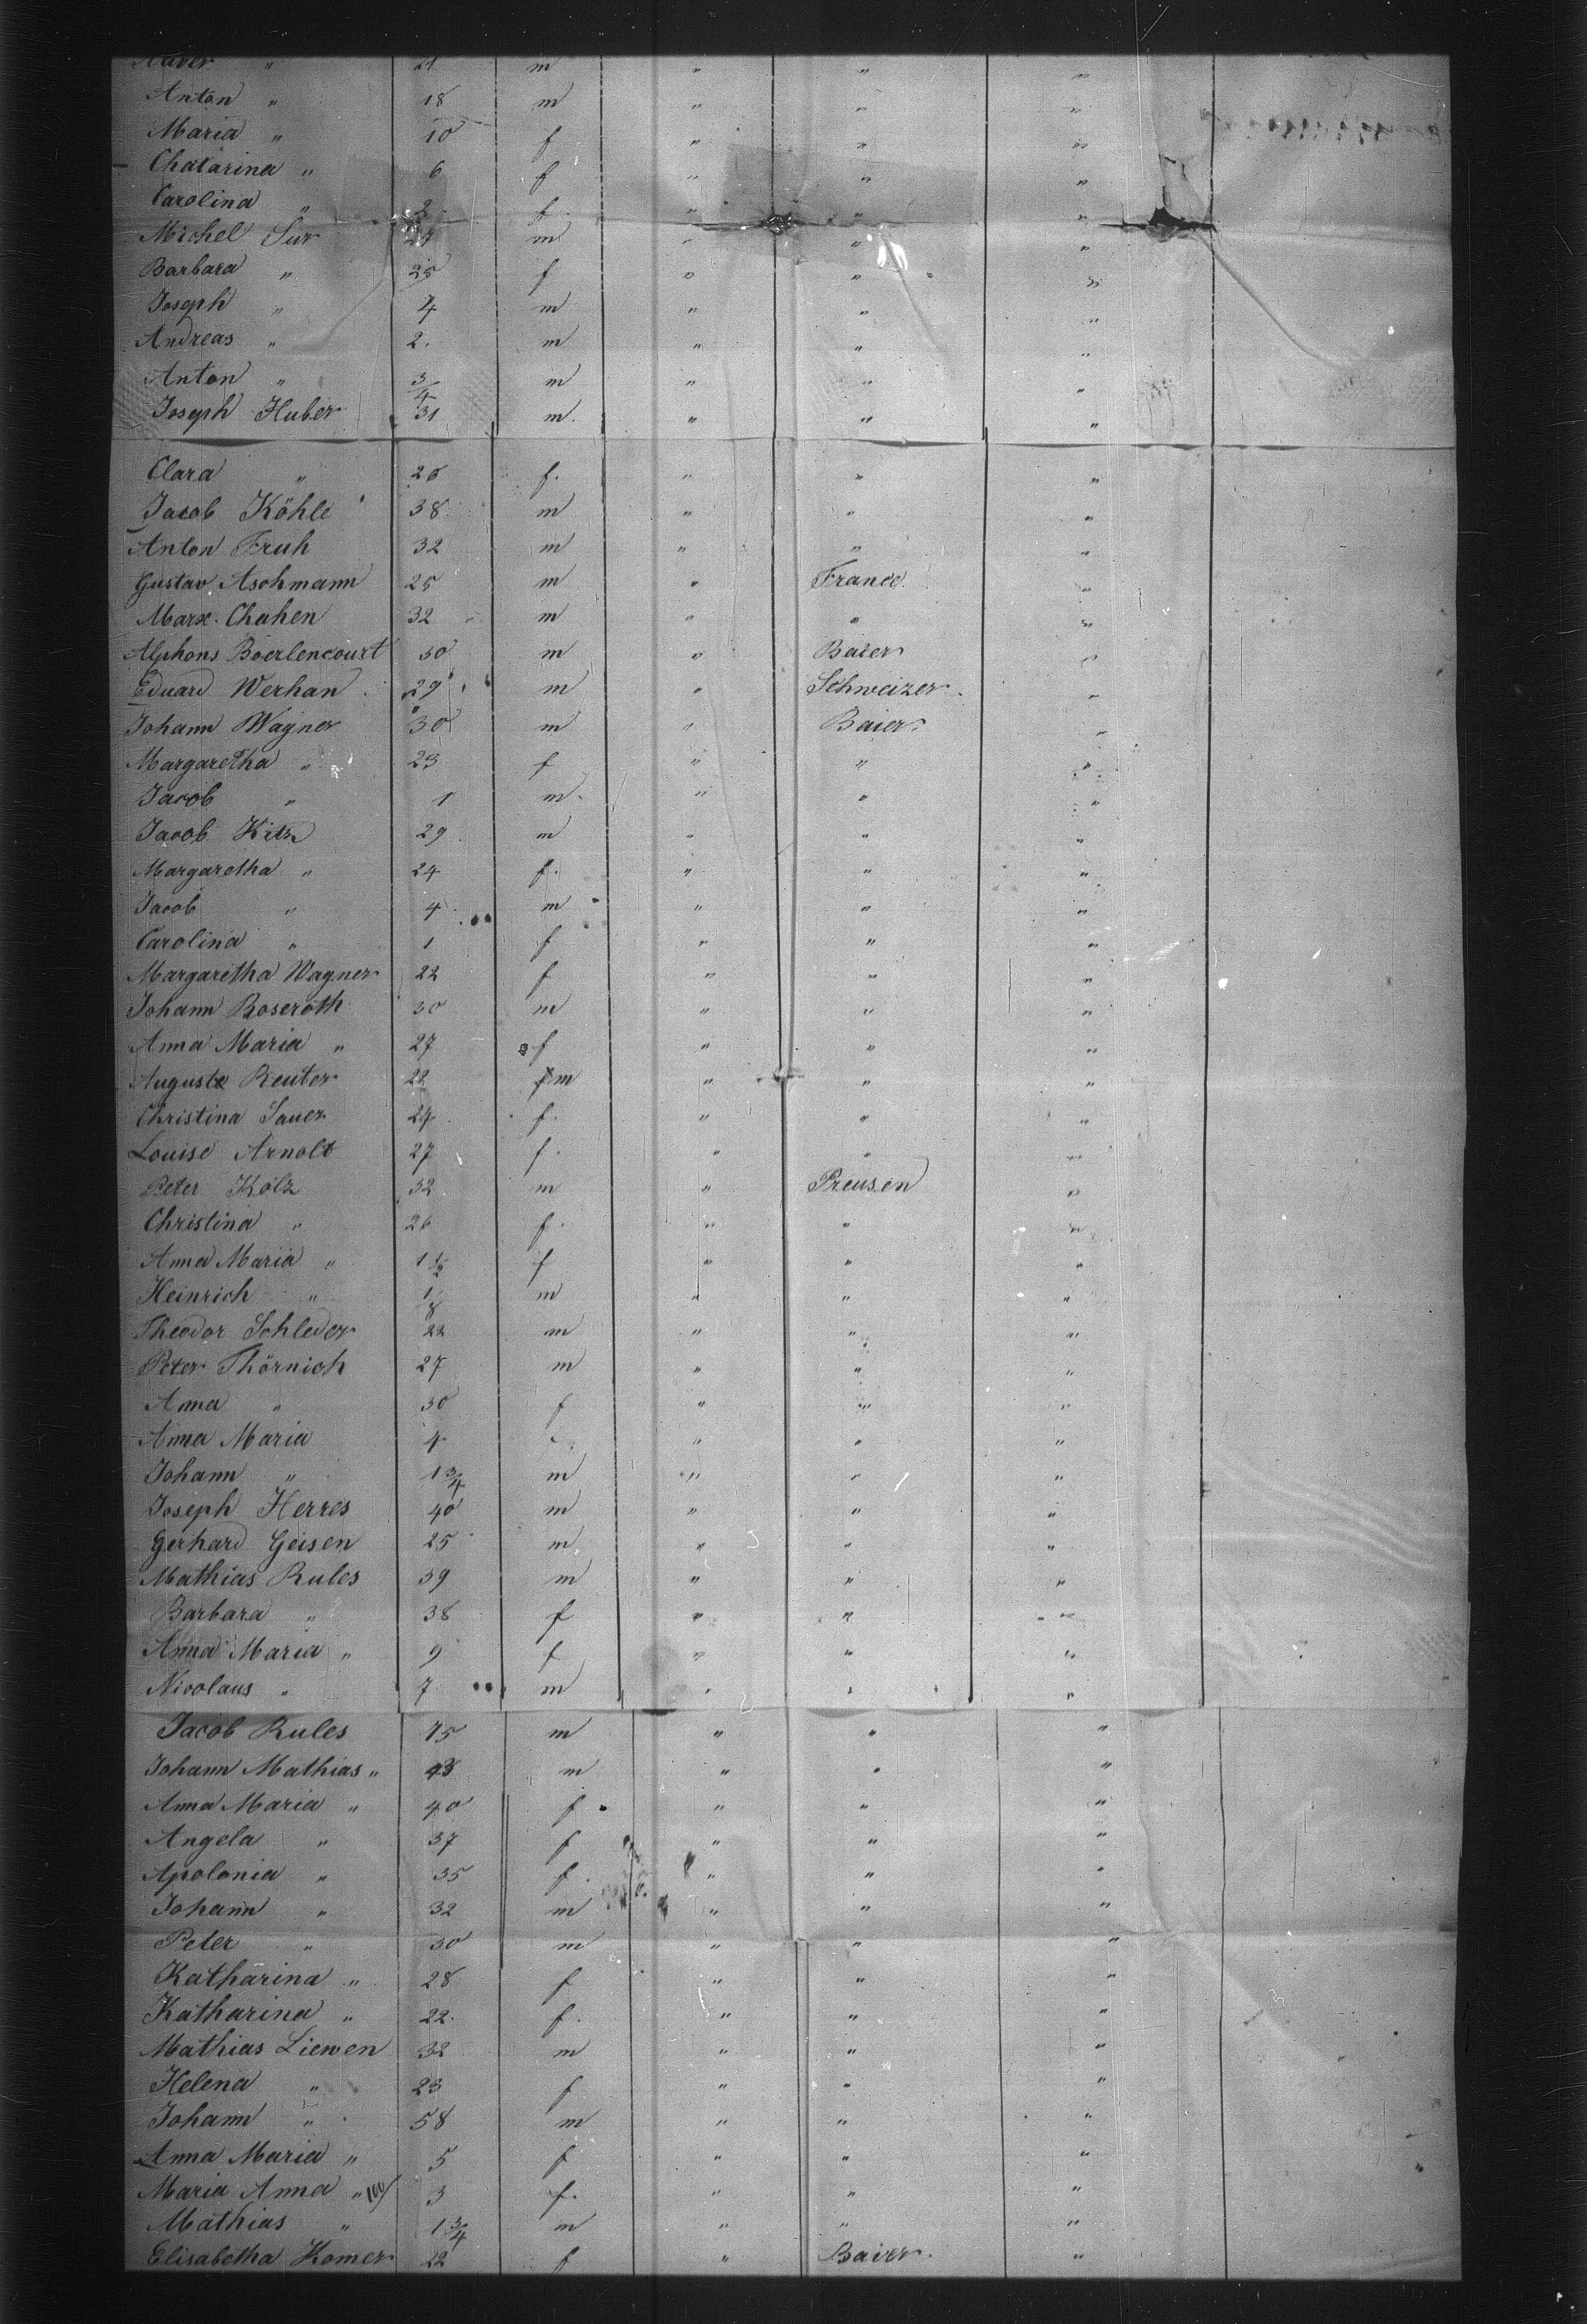 Xaver " 21 m " " "
Anton " 18 m " " "
Maria " 10 f " " "
Chatarina " 6 f " " "
Carolina " 2 f " " "
Michel Sur m " " "
Barbara " 25 f " " "
Joseph " 4 m " " "
Andreas " 2. m " " "
Anton " 3/4 m " " "
Joseph Huber 31 m. " " "
Clara " 26 f. " " "
Jacob Köhle 38 m " " "
Anton Fruh 32 m " " "
Gustav Aschmann 25 m " France. "
Marx. Chahen 32 m " " "
Alphons Boerlencourt 30 m " Baier "
Eduard Werhan 29 m " Schweizer. "
Johann Wagner 30 m " Baier. "
Margaretha " 23 f " " "
Jacob " 1 m. " " "
Jacob Kitz 29 m " " "
Margaretha " 24 f. " " "
Jacob " 4 m " " "
Carolina " 1 f " " "
Margaretha Wagner 22 f " " "
Johann Boseroth 30 m " " "
Anna Maria " 27 f " " "
August Reuter 22 m " " "
Christina Sauer 24 f. " " "
Louise Arnolt 27 f. " " "
Peter Kolz 32 m " Preusen "
Christina " 26 f. " " "
Anna Maria " 1 1/2 f " " "
Heinrich " 1/8 m " " "
Theodor Schleder 22 m " " "
Peter Thörnich 27 m " " "
Anna " 30 f " " "
Anna Maria 4 " " "
Johann " 1 3/4 m " " "
Joseph Herres 40 m " " "
Gerhard Geisen 25 m. " " "
Mathias Rules 39 m " " "
Barbara " 38 f " " "
Anna Maria " 9 f " " "
Nicolaus " 7 m " " "
Jacob Rules 75 m " " "
Johann Mathias " 43 m " " "
Anna Maria " 40 f " " "
Angela " 37 f " " "
Apolonia " 35 f. " " "
Johann " 32 m " " "
Peter " 30 m " " "
Katharina " 28 f " " "
Katharina " 22. f. " " "
Mathias Liewen 32 m " " "
Helena " 23 f " " "
Johann " 58 m " " "
Anna Maria " 5 f " " "
Maria Anna " 100/ 3 f. " " "
Mathias " 1 3/4 m " " "
Elisabetha Komer 22 f " Baier. "